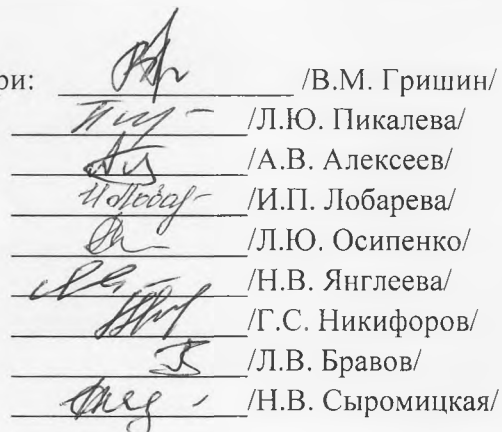 ри: /В.М. Гришин/
/Л.Ю. Пикалева/
/А.В. Алексеев/
/И.П. Лобарева/
/Л.Ю. Осипенко/
/Н.В. Янглеева/
/Г.С. Никифоров/
/Л.В. Бравов/
/Н.В. Сыромицкая/